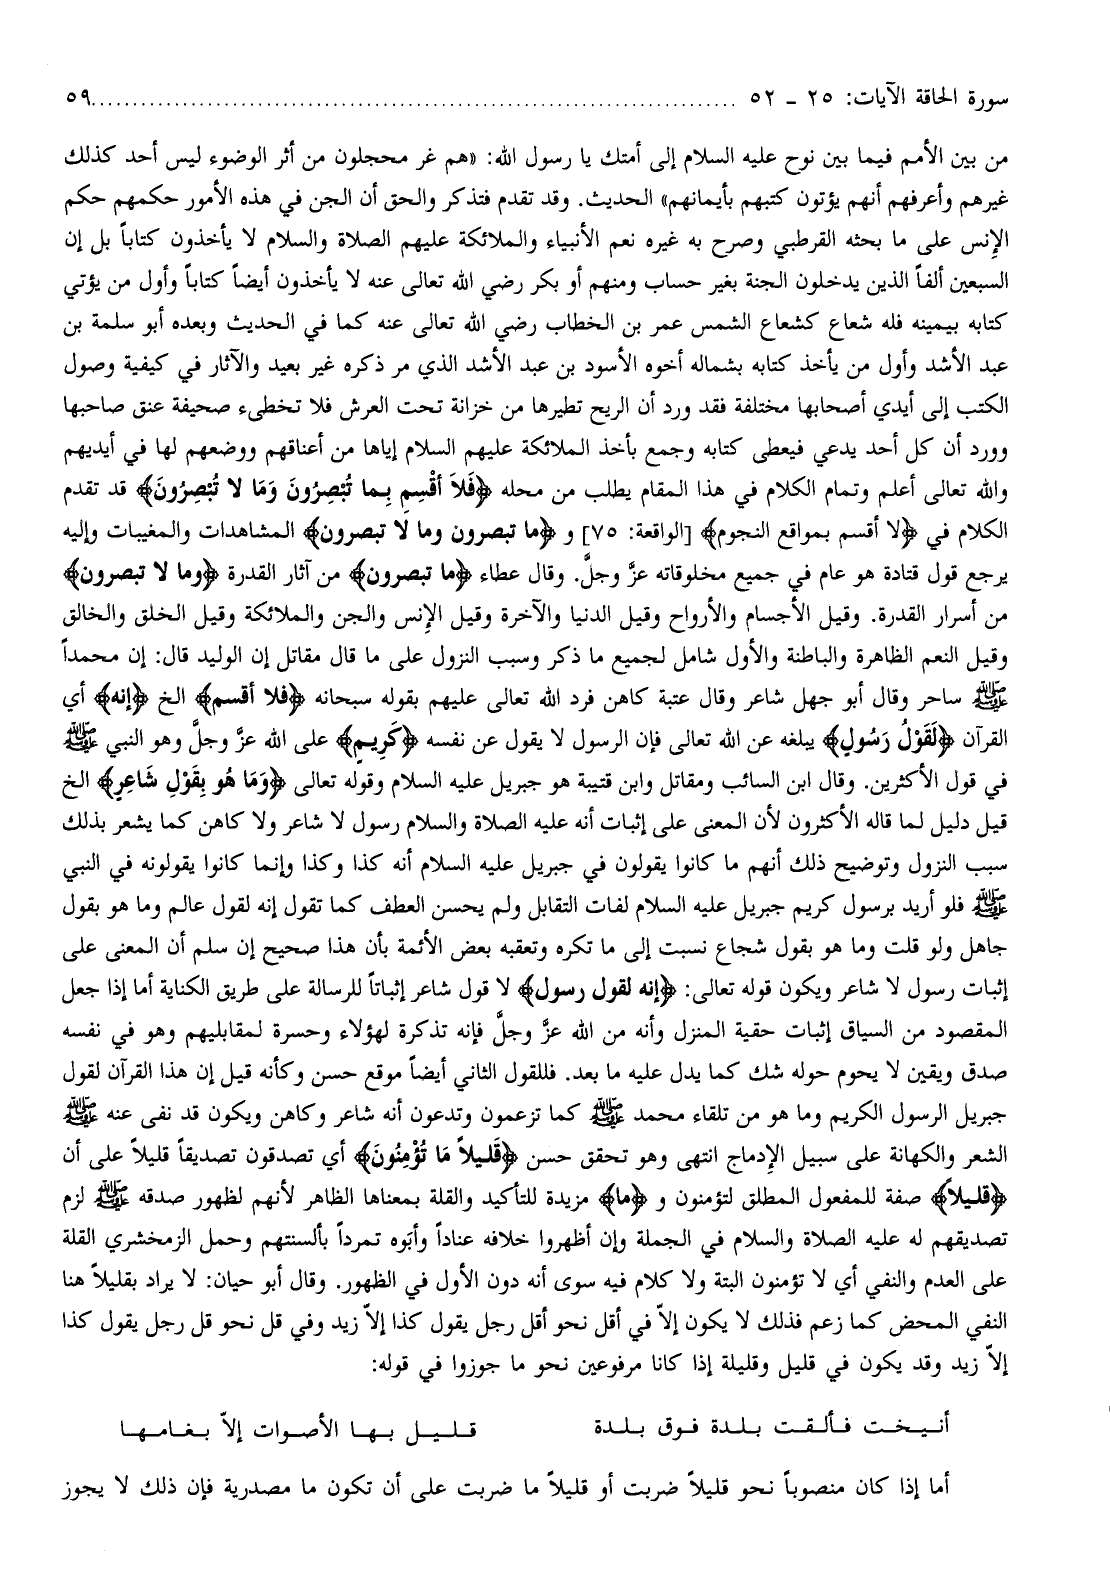 سورة الحاقة الآيات: ٢٥ ـ ٥٢ ........................................................................ ٥٩
من بين الأمم فيما بين نوح عليه السلام إلى أمتك يا رسول الله: «هم غر محجلون من أثر الوضوء ليس أحد كذلك
غيرهم وأعرفهم أنهم يؤتون كتبهم بأيمانهم» الحديث. وقد تقدم فتذكر والحق أن الجن في هذه الأمور حكمهم حكم
الإِنس على ما بحثه القرطبي وصرح به غيره نعم الأنبياء والملائكة عليهم الصلاة والسلام لا يأخذون كتاباً بل إن
السبعين ألفاً الذين يدخلون الجنة بغير حساب ومنهم أو بكر رضي الله تعالى عنه لا يأخذون أيضاً كتاباً وأول من يؤتي
كتابه بيمينه فله شعاع كشعاع الشمس عمر بن الخطاب رضي الله تعالى عنه كما في الحديث وبعده أبو سلمة بن
عبد الأشد وأول من يأخذ كتابه بشماله أخوه الأسود بن عبد الأشد الذي مر ذكره غير بعيد والآثار في كيفية وصول
الكتب إلى أيدي أصحابها مختلفة فقد ورد أن الريح تطيرها من خزانة تحت العرش فلا تخطىء صحيفة عنق صاحبها
وورد أن كل أحد يدعي فيعطى كتابه وجمع بأخذ الملائكة عليهم السلام إياها من أعناقهم ووضعهم لها في أيديهم
والله تعالى أعلم وتمام الكلام في هذا المقام يطلب من محله ﴿فَلاَ أقْسِم بِما تُبْصِرُونَ وَمَا لا تُبْصِرُونَ﴾ قد تقدم
الكلام في ﴿لا أقسم بمواقع النجوم﴾ [الواقعة: ٧٥] و ﴿ما تبصرون وما لا تبصرون﴾ المشاهدات والمغيبات وإليه
يرجع قول قتادة هو عام في جميع مخلوقاته عزَّ وجلَّ. وقال عطاء ﴿ما تبصرون﴾ من آثار القدرة ﴿وما لا تبصرون﴾
من أسرار القدرة. وقيل الأجسام والأرواح وقيل الدنيا والآخرة وقيل الإِنس والجن والملائكة وقيل الخلق والخالق
وقيل النعم الظاهرة والباطنة والأول شامل لجميع ما ذكر وسبب النزول على ما قال مقاتل إن الوليد قال: إن محمداً
ﷺ ساحر وقال أبو جهل شاعر وقال عتبة كاهن فرد الله تعالى عليهم بقوله سبحانه ﴿فلا أقسم﴾ الخ ﴿إنه﴾ أي
القرآن ﴿لَقَوْلُ رَسُولٍ﴾ يبلغه عن الله تعالى فإن الرسول لا يقول عن نفسه ﴿كَرِيمٍ﴾ على الله عزَّ وجلَّ وهو النبي ﷺ
في قول الأكثرين. وقال ابن السائب ومقاتل وابن قتيبة هو جبريل عليه السلام وقوله تعالى ﴿وَمَا هُو بِقَوْلِ شَاعِرٍ﴾ الخ
قيل دليل لما قاله الأكثرون لأن المعنى على إثبات أنه عليه الصلاة والسلام رسول لا شاعر ولا كاهن كما يشعر بذلك
سبب النزول وتوضيح ذلك أنهم ما كانوا يقولون في جبريل عليه السلام أنه كذا وكذا وإنما كانوا يقولونه في النبي
ﷺ فلو أريد برسول كريم جبريل عليه السلام لفات التقابل ولم يحسن العطف كما تقول إنه لقول عالم وما هو بقول
جاهل ولو قلت وما هو بقول شجاع نسبت إلى ما تكره وتعقبه بعض الأئمة بأن هذا صحيح إن سلم أن المعنى على
إثبات رسول لا شاعر ويكون قوله تعالى: ﴿إنه لقول رسول﴾ لا قول شاعر إثباتاً للرسالة على طريق الكناية أما إذا جعل
المقصود من السياق إثبات حقية المنزل وأنه من الله عزَّ وجلَّ فإنه تذكرة لهؤلاء وحسرة لمقابليهم وهو في نفسه
صدق ويقين لا يحوم حوله شك كما يدل عليه ما بعد. فللقول الثاني أيضاً موقع حسن وكأنه قيل إن هذا القرآن لقول
جبريل الرسول الكريم وما هو من تلقاء محمد ﷺ كما تزعمون وتدعون أنه شاعر وكاهن ويكون قد نفى عنه ﷺ
الشعر والكهانة على سبيل الإِدماج انتهى وهو تحقق حسن ﴿قَلـيلاً مَا تُؤْمِنُونَ﴾ أي تصدقون تصديقاً قليلاً على أن
﴿قلـيلاً﴾ صفة للمفعول المطلق لتؤمنون و ﴿ما﴾ مزيدة للتأكيد والقلة بمعناها الظاهر لأنهم لظهور صدقه ﷺ لزم
تصديقهم له عليه الصلاة والسلام في الجملة وإن أظهروا خلافه عناداً وأبَوه تمرداً بألسنتهم وحمل الزمخشري القلة
على العدم والنفي أي لا تؤمنون البتة ولا كلام فيه سوى أنه دون الأول في الظهور. وقال أبو حيان: لا يراد بقليلاً هنا
النفي المحض كما زعم فذلك لا يكون إلاّ في أقل نحو أقل رجل يقول كذا إلاّ زيد وفي قل نحو قل رجل يقول كذا
إلاّ زيد وقد يكون في قليل وقليلة إذا كانا مرفوعين نحو ما جوزوا في قوله:
أنيخت فألقت بلدة فوق بلدة    قليل بها الأصوات إلاّ بغامها
أما إذا كان منصوباً نحو قليلاً ضربت أو قليلاً ما ضربت على أن تكون ما مصدرية فإن ذلك لا يجوز